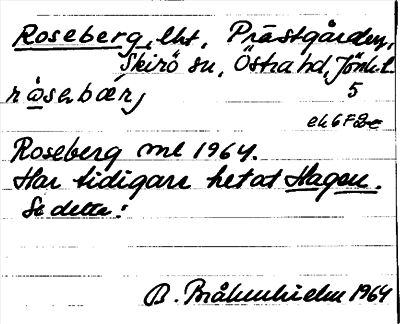 Roseberg, lht, Prästgården,
Skirö sn, Östra hd, Jönk.l.
5
ek 6 F
Roseberg ml 1964.
Har tidigare hetat Hagen.
Se detta!
B. Bråkenhielm 1964